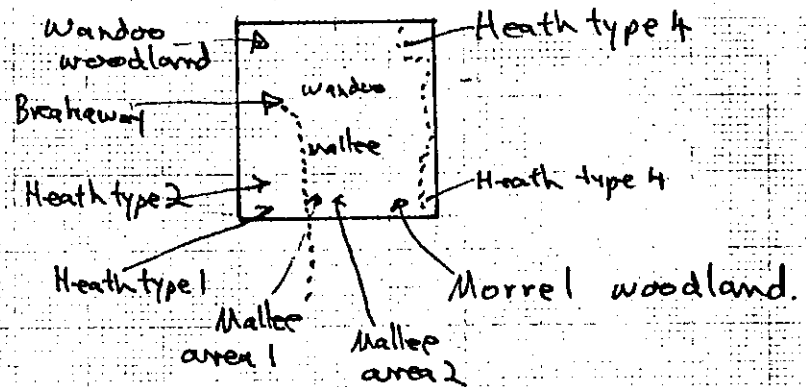 Wandoo
woodland
Heath type 4
Breakaway
wandoo
mallee
Heath type 2
Heath type 4
Heath type 1
Morrel woodland.
Mallee
area 1
Mallee
area 2